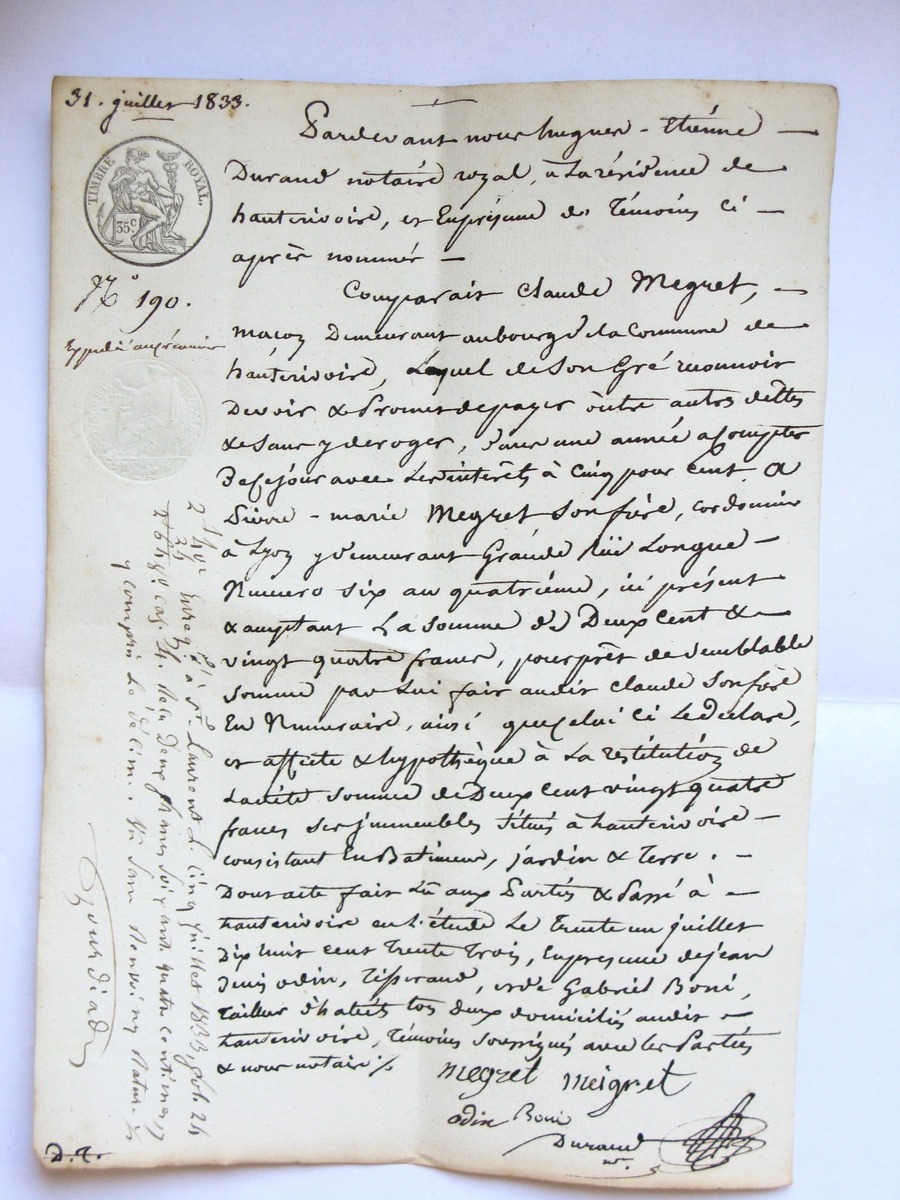 31. juillet 1833.
TIMBRE ROYAL.
35 c.
N.o 190.
Pardevant nous hugues - Etiénne —
Durand notaire royal, à La résidence de
hauterivoire, et En présence de Témoins Ci —
après nommés —
Comparait Claude Megret, —
maçon Demeurant au bourg de la Commune de
hauterivoire, Lequel de Son Gré reconnoit
Devoir & Promet de payer outre autres dettes
& Sans y deroger, Dans une année a Compter
De ce jour avec Les intérêts à Cinq pour Cent, a
Pierre - marie Megret Son frère, Cordonnier
à Lyon y demeurant Grande Rüe Longue —
Numero Six au quatrième, ici présent
& acceptant La Somme de Deux Cent &
vingt quatre francs, pour prêt de Semblable
Somme par Lui fait audit Claude Son frère
En Numeraire, ainsi que Celui Ci Le déclare,
et affecte & hypothèque à La restitution de
Ladite Somme de Deux Cent vingt quatre
francs Ses jmmeubles Situés à hauterivoire —
consistant En Batiment, jardin & Terre. —
Dont acte fait Lu aux Parties & Passé à —
hauterivoire en L'étude Le trente un juillet
Dix huit cent trente trois, En présence de jean
Denis odin, Tisserand, et de Gabriel Boni,
Tailleur d'habits tos deux domiciliés audit —
hauterivoire, Témoins Soussignés avec les Parties
& nous notaire ./.
megret meigret
odin Boni
Durand
nre.
Enreg. à St. Laurent L. Cinq 1833, fol. 24
Reçu Deux francs Soixante quatre centimes
y compris Le décime.
D. q.